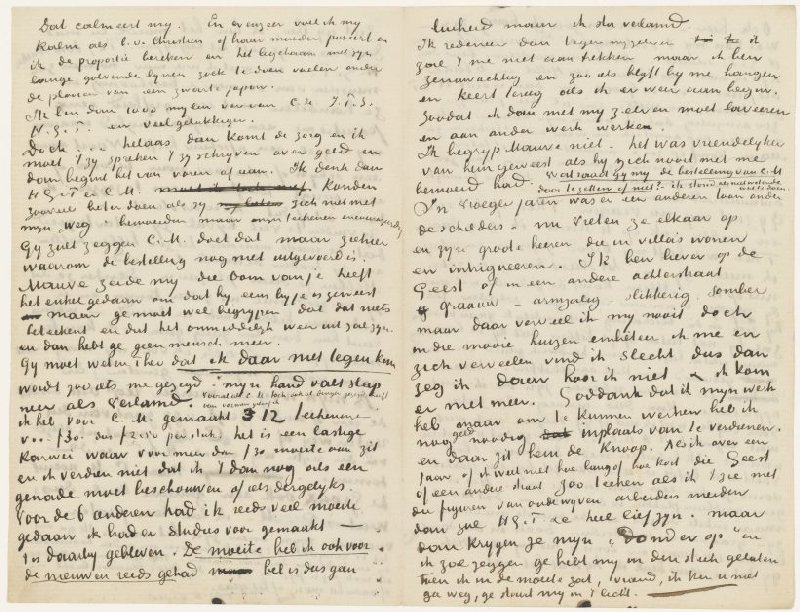 Dat calmeert my. En evenzeer voel ik my
kalm als b.v. Christien of haar moeder poseert en
ik de proportie bereken en het ligchaam met zyn
lange golvende lynen zoek te doen voelen onder
de plooien van een zwarte japon.
Ik ben dan 1000 mylen ver van C.M. J.P.S.
H.G.T. en veel gelukkiger.
Doch... helaas dan komt de zorg en ik
moet 't zy spreken 't zy schryven over geld en
dan begint het van voren af aan. Ik denk dan
HGT & C.M. konden
zooveel beter doen als zy zich niet met
myn "weg" bemoeiden maar myn teekenen
Gy zult zeggen C.M. doet dat maar ziehier
waarom de bestelling nog niet uitgevoerd is.
Mauve zeide my die Oom van je heeft
het enkel gedaan om dat hy eens by je is geweest
maar ge moet wel begrypen dat dat niets
beteekent en dat het onmiddelyk weer uit zal zyn.
en dan hebt ge geen mensch meer.
Gy moet weten Theo dat ik daar niet tegen kan
wordt zoo iets me gezegd myn hand valt slap
neer als verlamd.
Ik heb voor C.M. gemaakt 12 teekeningen
voor f 30. dus f 2.50 per stuk. het is een lastige
karwei waar voor meer dan f 30 moeite aan zit
en ik verdien niet dat ik 't dan nog als een
genade moet beschouwen of iets dergelyks.
Voor de 6 anderen had ik reeds veel moeite
gedaan ik had er studies voor gemaakt –
't is daarby gebleven. De moeite heb ik ook voor
de nieuwen reeds gehad het is dus geen
luiheid maar ik sta verlamd
Ik redeneer dan tegen my zelven ik
zoek 't me niet aan te trekken maar ik ben
zenuwachtig en zoo iets blyft by me hangen
en keert terug als ik er weer aan begin.
Zoodat ik dan met my zelven moet laveeren
en aan ander werk werken.
Ik begryp Mauve niet. het was vriendelyker
van hem geweest als hy zich nooit met me
bemoeid had. Wat raad gy my de bestelling van C.M
door te zetten of niet? – ik
In vroeger jaren was er een anderen toon onder
de schilders – nu vreten ze elkaar op
en zyn groote heeren die in villa's wonen
en intrigueeren. Ik ben liever op de
Geest of in een andere achterstraat
graauw – armzalig – slikkerig somber
maar daar verveel ik my nooit doch
in die mooie huizen embêteer ik me en
zich vervelen vind ik slecht dus dan
zeg ik daar hoor ik niet & ik kom
er niet meer. Goddank dat ik myn werk
heb maar om te kunnen werken heb ik
nog geld noodig inplaats van te verdienen.
en daar zit hem de knoop. Als ik over een
jaar of ik weet niet hoe lang of hoe kort die Geest
of een andere straat zoo teeken als ik 't zie met
die figuren van oude wyven arbeiders meiden
dan zal HGT &c heel lief zyn. maar
dan krygen ze myn "donder op" en
ik zoe zeggen ge hebt my in den steek gelaten
toen ik in de moeite zat, vriend, ik ken u niet
ga weg, ge staat my in 't licht.